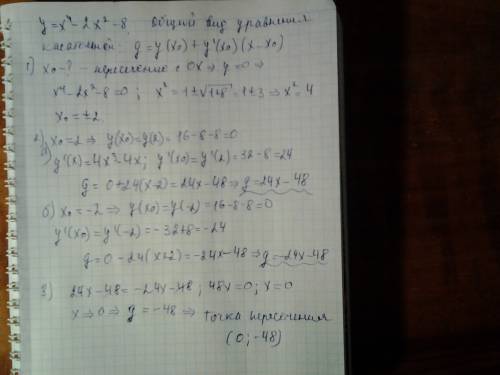 y=x⁴-2x²-8. Общий вид уравнения
касательной g=y(x₀)+y'(x₀)(x-x₀)
1) x₀-? - пересечение с OX ⇒ y=0 ⇒
x⁴-2x²-8=0; x²=1±√1+8=1±3 ⇒ x²=4
x₀=±2
2) x₀=2 ⇒ y(x₀)=y(2)=16-8-8=0
а) y'(x)=4x³-4x; y'(x₀)=y'(2)=32-8=24
g=0+24(x-2)=24x-48 ⇒ g=24x-48
б) x₀=-2 ⇒ y(x₀)=y(-2)=16-8-8=0
y'(x₀)=y'(-2)=-32+8=-24
g=0-24(x+2)=-24x-48 ⇒ g=-24x-48
3) 24x-48=-24x-48; 48x=0; x=0
x⇒0 ⇒ g=-48 ⇒ точка пересечения
(0;-48)